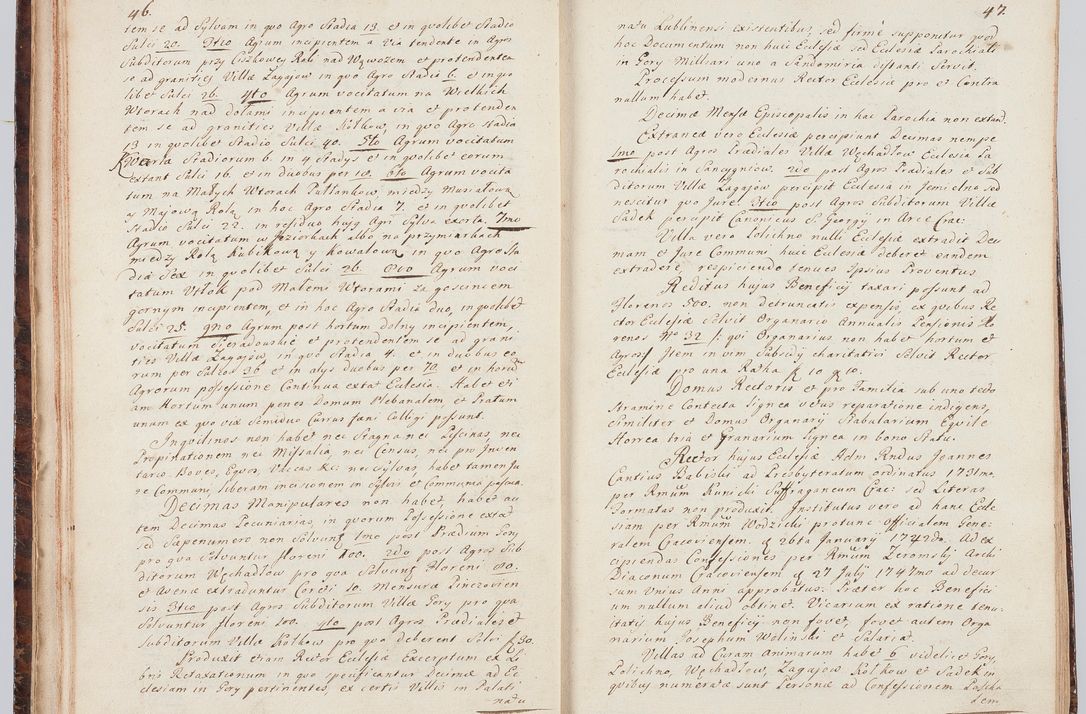 46.
tem se ad Sylvam in quo Agro Stadia 13. et in quolibet Stadio
Sulci 20. 3tio Agrum incipientem a Via tendente in Agros
Subditorum przy Ciszkowey Roli nad Wąwozem et protendentem
se ad granities Villæ Zagajow in quo Agro Stadia 6. et in quo
libet Sulci 26. 4to Agrum vocitatum na Wielkich
Wtorach nad dołami incipientem a via et protenden
tem se ad granities Villæ Kotkow, in quo Agro Stadia
13 in quolibet Stadio Sulci 40. 5to Agrum vocitatum
Kwarta Stadiorum 6. in 4 Stadys et in quolibet eorum
extant Sulci 16. et in duobus per 10. 6to Agrum vocita
tum na Małych Wtorach Pułłankow między Musiałową
y Majową Rolą, in hoc Agro Stadia 7. et in quolibet
Stadio Sulci 22. in residuo hujus Agri Sylva exorta. 7mo
Agrum vocitatum w Jeziorkach albo na przymiarkach
między Rolą Kubikową y Kowalową in quo Agro Sta
dia Sex in quolibet Sulci 26. 8vo Agrum voci
tatum Włok pod Małemi Wtorami za goscincem
gornym incipientem, et in hoc Agro Stadia duo, in quolibet
Sulci 25. 9no Agrum post hortum dolny incipientem,
vocitatum Sieradouskie et protendentem se ad grani
ties Villæ Zagajow in quo Stadia 4. et in duobus eo
rum per Sulcos 36 et in alys duobus per 70. et in horum
Agrorum possessione Continua extat Ecclesia. Habet eti
am Hortum unum penes Domum Plebanalem et Pratum
unum ex quo vix Semiduo Currus fæni Colligi possunt.
Inquilinos non habet nec Stagna nec Piscinas, nec
Propinationem nec Missalia, nec Census, nec pro Inven
tario Boves, Equos, Vaccas &c: nec Sylvas, habet tamen Ju
re Communi, liberam incisionem in Sylvis et Communia pascua.
Decimas Manipulares non habet, habet au
tem Decimas Pecuniarias, in quorum Possessione extat
sed Sæpenumero non Solvunt 1mo post Prædium Gory
pro qua Solvuntur floreni 100. 2do post Agros Sub
ditorum Węchadłow pro qua Solvunt Floreni 80.
et Avenæ extraduntur Coreti 10. Mensuræ Pinczovien
sis 3tio post Agros Subditorum Villæ Gory pro qua
Solvuntur floreni 100. 4to post Agros Prædiales et
Subditorum Villæ Kotkow pro quo deberent Solvi f. 30.
Produxit etiam Rector Ecclesiæ Excerptum ex Li
bris Retaxationum in quo specificantur Decimæ ad Ec
clesiam in Gory pertinentes, ex certis Villis in Palati
natu
47.
natu Lublinensi existentibus, sed firmè supponitur quod
hoc Documentum non huic Ecclesiæ sed Ecclesiæ Parochiali
in Gory Milliari uno a Sandomiria distanti Servit.
Processum modernus Rector Ecclesiæ pro et Contra
nullum habet.
Decimæ Mensæ Episcopalis in hac Parochia non extant.
Extraneæ vero Ecclesiæ percipiunt Decimas nempe
1mo post Agros Prædiales Villæ Węchadłow Ecclesia Pa
rochialis in Sancygniow. 2do post Agros Prædiales et Sub
ditorum Villæ Zagajow percipit Ecclesia in Jemielno sed
nescitur quo Jure. 3tio post Agros Subditorum Villæ
Sadek percipit Canonicus S. Georgy in Arce Crac:
Villa vero Polichno nulli Ecclesiæ extradit Deci
mam et Jure Communi huic Ecclesiæ deberet eandem
extradere, respiciendo tenues ipsius Proventus
Reditus hujus Beneficij taxari possunt ad
Florenos 500. non detruncatis expensis, ex quibus Re
ctor Ecclesiæ Solvit Organario Annualis Pensionis Flo
renos No 32 /: qui Organarius non habet hortum et
Agros/ Item in vim Subsidy charitativi Solvit Rector
Ecclesiæ pro una Ratha f 10 g 10.
Domus Rectoris et pro Familia sub uno tecto
Stramine Contecta lignea vetus reparatione indigens,
Similiter et Domus Organary Stabularium Equile
Horrea tria et Granarium lignea in bono Statu.
Rector hujus Ecclesiæ Adm Rndus Joannes
Cantius Babilski ad Presbyteratum ordinatus 1731mo
per Rmum Kunicki Suffraganeum Crac: sed Literas
Formatas non produxit. Institutus vero ad hanc Eccle
siam per Rmum Wodzicki protunc Officialem Gene
ralem Cracoviensem. g 26ta January 1742do. Ad ex
cipiendas Confessiones per Rmum Zeromskj Archi
Diaconum Cracoviensem g 27 July 1747mo ad decur
sum Unius Anni approbatus. Præter hoc Benefici
um nullum aliud obtinet. Vicarium ex ratione tenu
itatis hujus Beneficij non fovet, fovet autem Orga
narium Josephum Wolinski et Salariat.
Villas ad Curam Animarum habet 6 videlicet Gory,
Polichno, Węchadłow, Zagajow, Kotkow et Sadek in
quibus numeratæ sunt Personæ ad Confessionem Pascha
lem